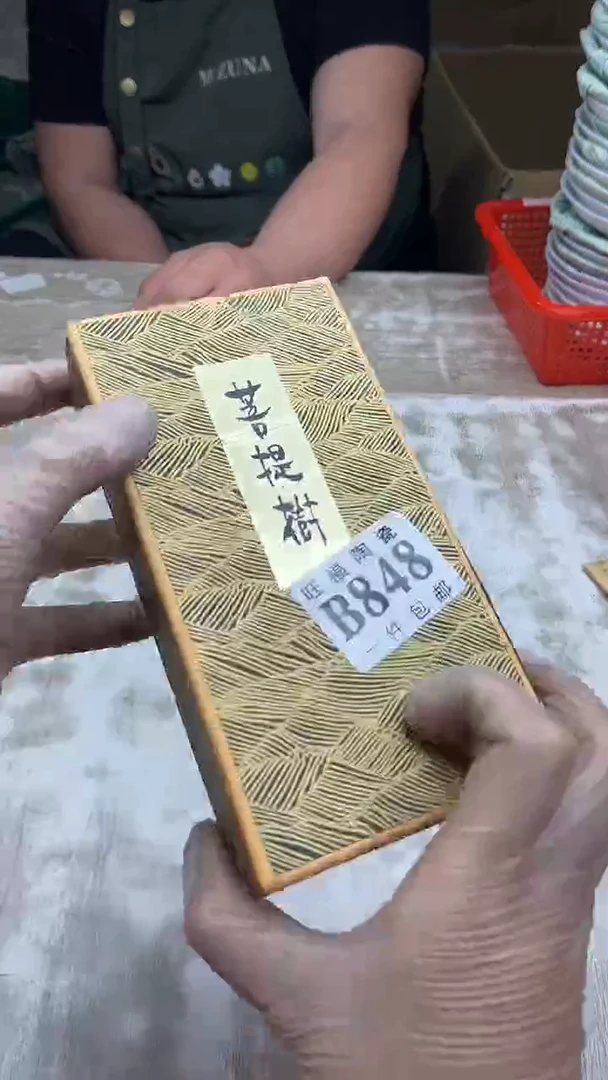 MOZUNA
菩提樹
旺福陶瓷
B848
一件包邮